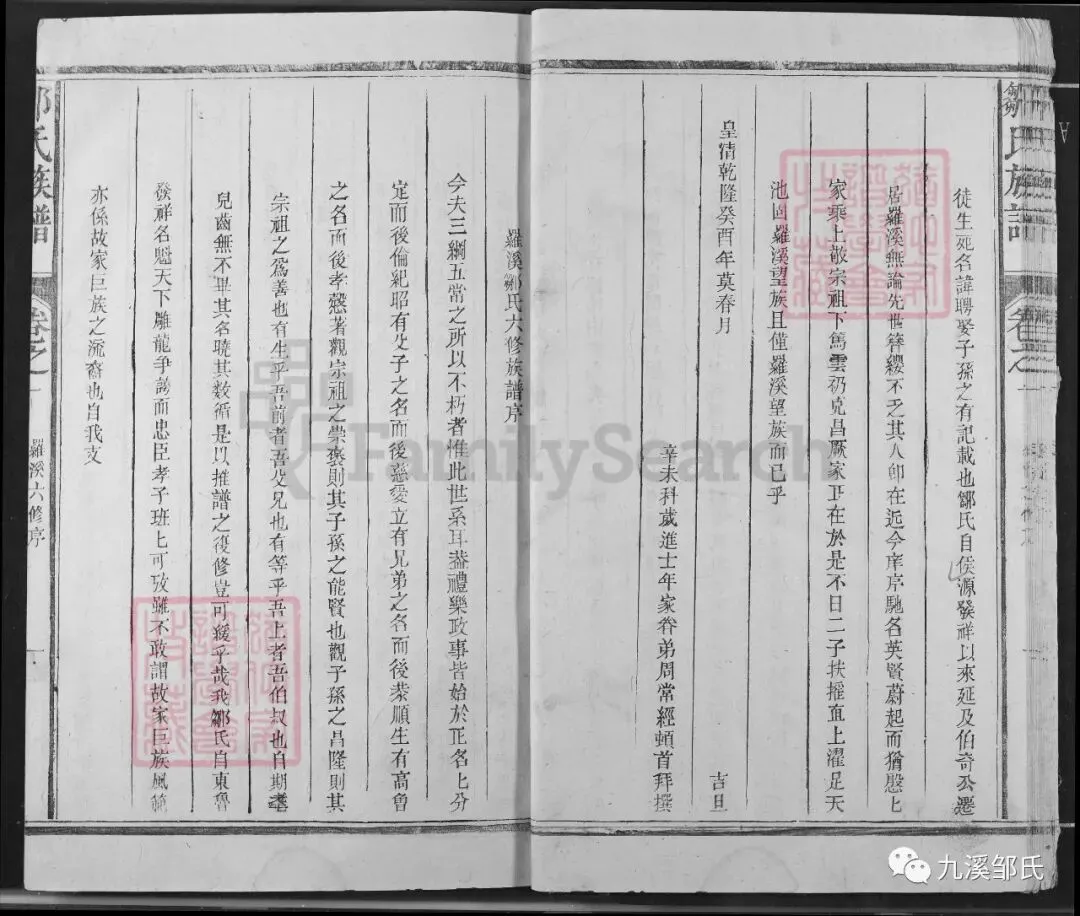 鄒氏族譜
卷之一
徒生死名諱聘娶子孫之有記載也鄒氏自侯源發祥以來延及伯奇公遷
居羅溪無論先世簪纓不乏其人卽在近今庠序馳名英賢蔚起而猶慇上
家乘上敬宗祖下篤雲礽克昌厥家正在於是不日二子扶搖直上濯足天
池固羅溪望族且僅羅溪望族而已乎
皇清乾隆癸酉年莫春月
吉旦
辛未科歲進士年家眷弟周常經頓首拜撰
羅溪鄒氏六修族譜序
今夫三綱五常之所以不朽者惟此世系耳葢禮樂政事皆始於正名上分
定而後倫紀昭有父子之名而後慈愛立有兄弟之名而後恭順生有高曾
之名而後孝慤著觀宗祖之崇褒則其子孫之能賢也觀子孫之昌隆則其
宗祖之爲善也有生乎吾前者吾父兄也有等乎吾上者吾伯叔也自期耋
兒齒無不畢其名曉其数循是以推譜之復修豈可緩乎哉我鄒氏自東魯
發祥名魁天下雕龍爭誇而忠臣孝子班上可攷雖不敢謂故家巨族風範
亦係故家巨族之流裔也自我支
鄒氏族譜
卷之一
羅溪六修序
一
FamilySearch
九溪邹氏